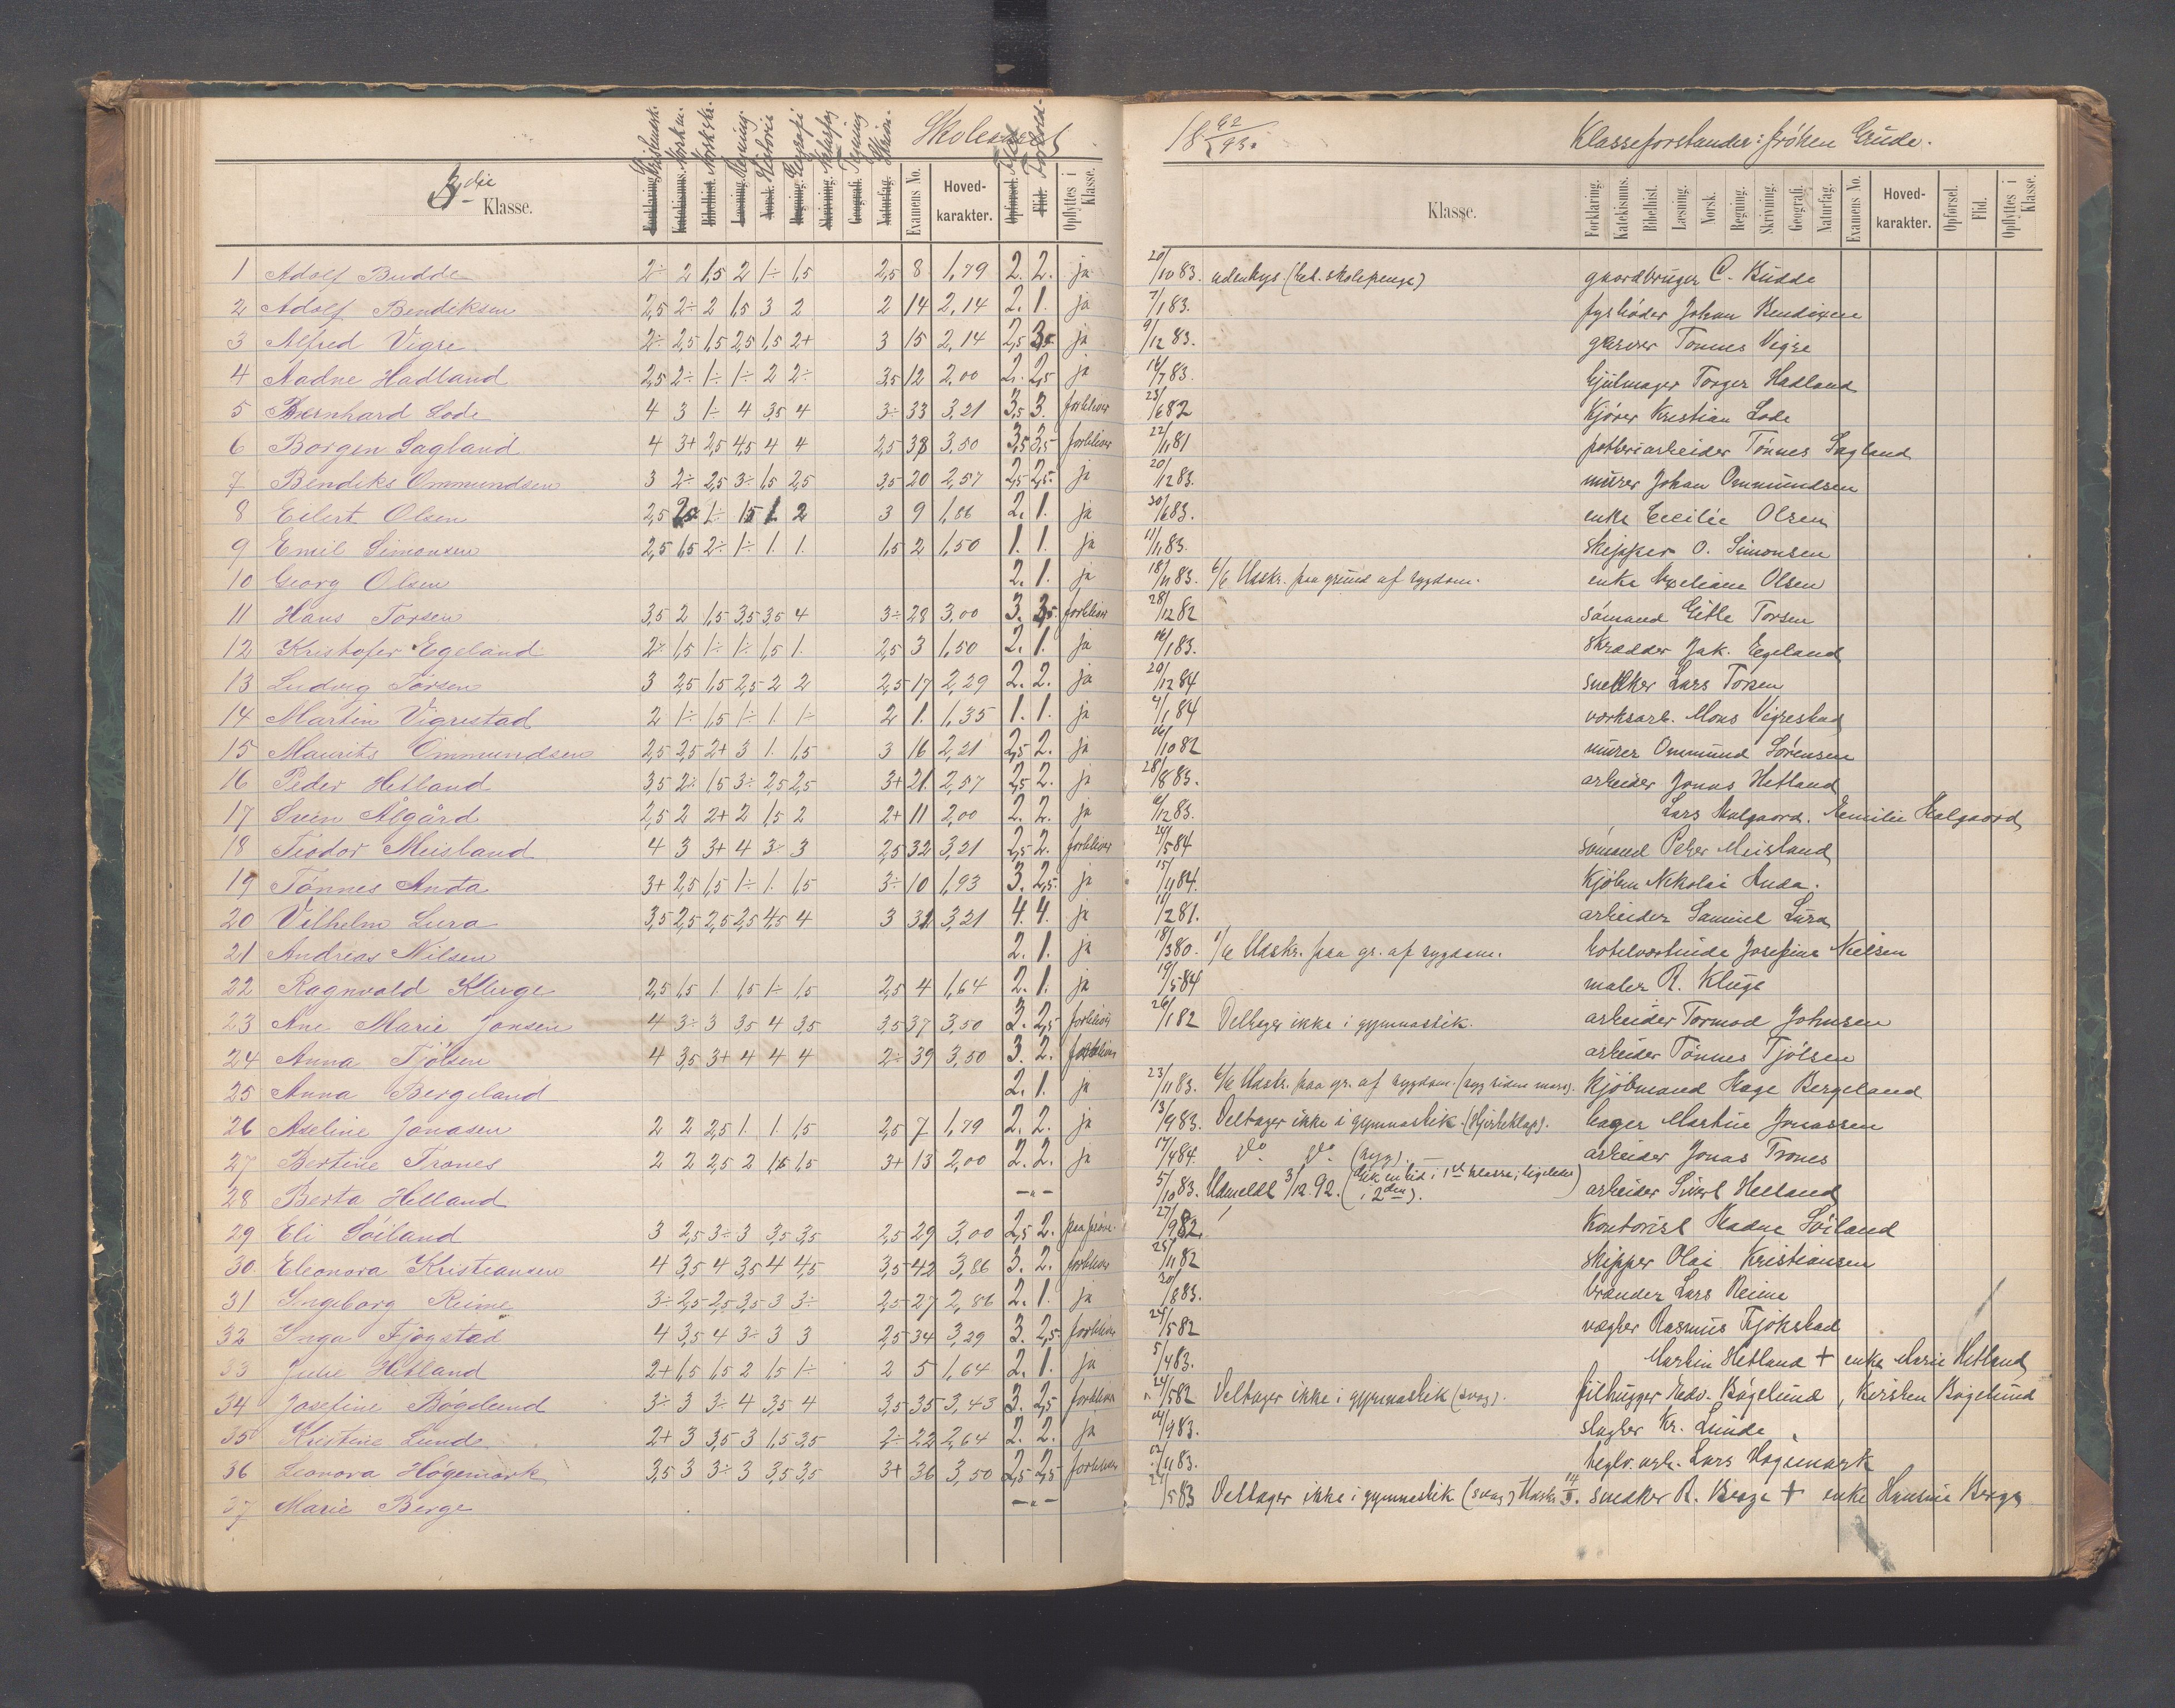 Skoleaaret 18 92/93.
Klasseforstander: frøken Grude.
3die Klasse. Forklaring. Katekismus. Bibelhist. Læsning. Norsk. Regning. Skrivning. Geografi. Naturfag. Examens No. Hoved-karakter. Opførsel. Flid. Opflyttes i Klasse.
Kristendomsk. Norsk m. Norsk sk. Regning Historie Geografi Naturfag Tegning Skrivn. Flid Forhold.
Klasse. Forklaring. Katekismus. Bibelhist. Læsning. Norsk. Regning. Skrivning. Geografi. Naturfag. Examens No. Hoved-karakter. Opførsel. Flid. Opflyttes i Klasse.
1 Adolf Budde 2÷ 2 1,5 2 1÷ 1,5 2,5 8 1,79 2. 2. ja 20/10 83. udenbys. (bet. skolepenge) gaardbruger C. Budde
2 Adolf Bendiksen 2,5 2÷ 2 1,5 3 2 2 14 2,14 2. 1. ja 7/1 83. fyrbøder Johan Bendixen
3 Alfred Vigre 2÷ 2,5 1,5 2,5 1,5 2+ 3 15 2,14 2,5 3,5 ja 9/12 83. garver Tønnes Vigre
4 Aadne Hadland 2,5 2÷ 1÷ 1÷ 2 2÷ 3,5 12 2,00 2. 2,5 ja 16/7 83. hjulmager Torger Hadland
5 Bernhard Lode 4 3 1÷ 4 3,5 4 3÷ 33 3,21 3,5 3. forbliver 23/6 82 Kjører Kristian Lode
6 Borgen Sagland 4 3+ 2,5 4,5 4 4 2,5 38 3,50 3,5 3,5 forbliver 22/11 81 potteriarbeider Tønnes Sagland
7 Bendiks Ommundsen 3 2÷ 2,5 3÷ 1,5 2,5 3,5 20 2,57 2,5 2,5 ja 20/12 83. murer Johan Ommundsen
8 Eilert Olsen 2,5 2,5 1÷ 1,5 1. 2 3 9 1,86 2. 1. ja 30/6 83. enke Cecilie Olsen
9 Emil Simonsen 2,5 1,5 2÷ 1÷ 1. 1. 1,5 2 1,50 1. 1. ja 11/11 83. Skipper O. Simonsen
10 Georg Olsen 2. 1. ja 18/11 83. 6/6 Udskr. paa grund af sygdom. enke Olsen
11 Hans Torsen 3,5 2 1,5 3,5 3,5 4 3÷ 28 3,00 3. 3,5 forbliver 28/12 82 sømand Gitle Torsen
12 Kristofer Egeland 2÷ 1,5 1÷ 1÷ 1,5 1. 2,5 3 1,50 2. 1. ja 16/1 83. Skrædder Jak. Egeland
13 Ludvig Torsen 3 2,5 1,5 2,5 2 2 2,5 17 2,29 2. 2. ja 20/12 84 snedker Lars Torsen
14 Martin Vigrestad 2 1÷ 1,5 1÷ 1. 1÷ 2 1. 1,35 1. 1. ja 4/1 84 værksarb. Mons Vigrestad
15 Maurits Ommundsen 2,5 2,5 2+ 3 1. 1,5 3 16 2,21 2,5 2. ja 16/10 82 murer Ommund Sørensen
16 Peder Hetland 3,5 2÷ 1,5 3÷ 2,5 2,5 3+ 21. 2,57 2,5 2. ja 28/8 83. arbeider Jonas Hetland
17 Svein Algård 2,5 2 2+ 2 1,5 2 2+ 11 2,00 2. 2. ja 6/12 83. Lars Aalgaard. Aalgaard
18 Teodor Meisland 4 3 3+ 4 3÷ 3 2,5 32 3,21 2,5 2. forbliver 24/5 84 sømand Peter Meisland
19 Tønnes Anda 3+ 2,5 1,5 1÷ 1. 1,5 3÷ 10 1,93 3. 2,5. ja 15/11 84. Kjøbm Nikolai Anda.
20 Vilhelm Lura 3,5 2,5 2,5 2,5 4,5 4 3 31 3,21 4. 4. ja 11/2 81. arbeider Samuel Lura
21 Andreas Nilsen 2. 1. ja 18/3 80. 1/6 Udskr. paa gr. af sygdom. hotelværtinde Josefine Nielsen
22 Ragnvald Kluge 2,5 1,5 1. 1,5 1÷ 1,5 2,5 4 1,64 2. 1. ja 19/5 84 maler R. Kluge
23 Ane Marie Jonsen 4 3÷ 3 3,5 4 3,5 3,5 37 3,50 3. 2,5 forbliver 26/1 82 Deltager ikke i gymnastik. arbeider Tormod Johnsen
24 Anna Tjølsen 4 3,5 3+ 4 4 4 2÷ 39 3,50 3. 2. forbliver arbeider Tønnes Tjølsen
25 Anna Bergeland 2. 1. ja 23/11 83. 6/6 Udskr. paa gr. af sygdom. (syg siden mars). Kjøbmand Hage Bergeland
26 Aseline Jonasen 2 2 2,5 1. 1. 1,5 2,5 7 1,79 2. 2. ja 13/9 83. Deltager ikke i gymnastik. (Hjerteklap). bager Martin Jonassen
27 Bertine Trones 2 2 2,5 2 1,5 1,5 3+ 13 2,00 2. 2. ja 17/4 84. Do. Do. (syg). arbeider Jonas Trones
28 Berta Helland —„— 5/10 83. Udmeldt 3/12. 92. (Gik en tid i 1ste klasse, ligeledes i 2den). arbeider Sivert Helland
29 Eli Søiland 3 2,5 3÷ 3 3,5 3,5 2,5 29 3,00 2,5 2. paa prøve. 27/9 82. Kontorist Aadne Søiland
30. Eleonora Kristiansen 4 3,5 4 3,5 4 4,5 3,5 42 3,86 3. 2. forbliver 25/11 82 Skipper Olai Kristiansen
31 Ingeborg Reime 3÷ 2,5 2,5 3,5 3 3÷ 2,5 27 2,86 2. 1. ja 30/8 83. Lars Reime
32 Inga Fjøgstad 4 3,5 4 3÷ 3 3 2,5 34 3,29 3. 2,5. forbliver 24/5 82 vægter Rasmus Fjøkstad
33 Julie Hetland 2+ 1,5 1,5 2 1,5 1÷ 2 5 1,64 2. 1. ja 5/4 83. Martin Hetland + enke Marie Hetland
34 Josefine Bøgelund 3÷ 3 3÷ 4 3,5 4 3,5 35 3,43 3. 2,5 forbliver 24/5 82 Deltager ikke i gymnastik (svag). filhugger Edv. Bøgelund, Kirsten Bøgelund
35 Kristine Lunde 2+ 3 3,5 3 1,5 3,5 2÷ 22 2,64 2. 2. ja 14/9 83. slagter Kr. Lunde
36 Leonora Høgemark 3,5 3 3÷ 3 3,5 3,5 3+ 36 3,50 2,5 2,5 forbliver 12/11 83. teglv. arb. Lars Høgemark
37 Marie Berge —„— 24/5 83 Deltager ikke i gymnastik (svag) Udskr. 14/3. snedker R. Berge + enke Hansine Berge